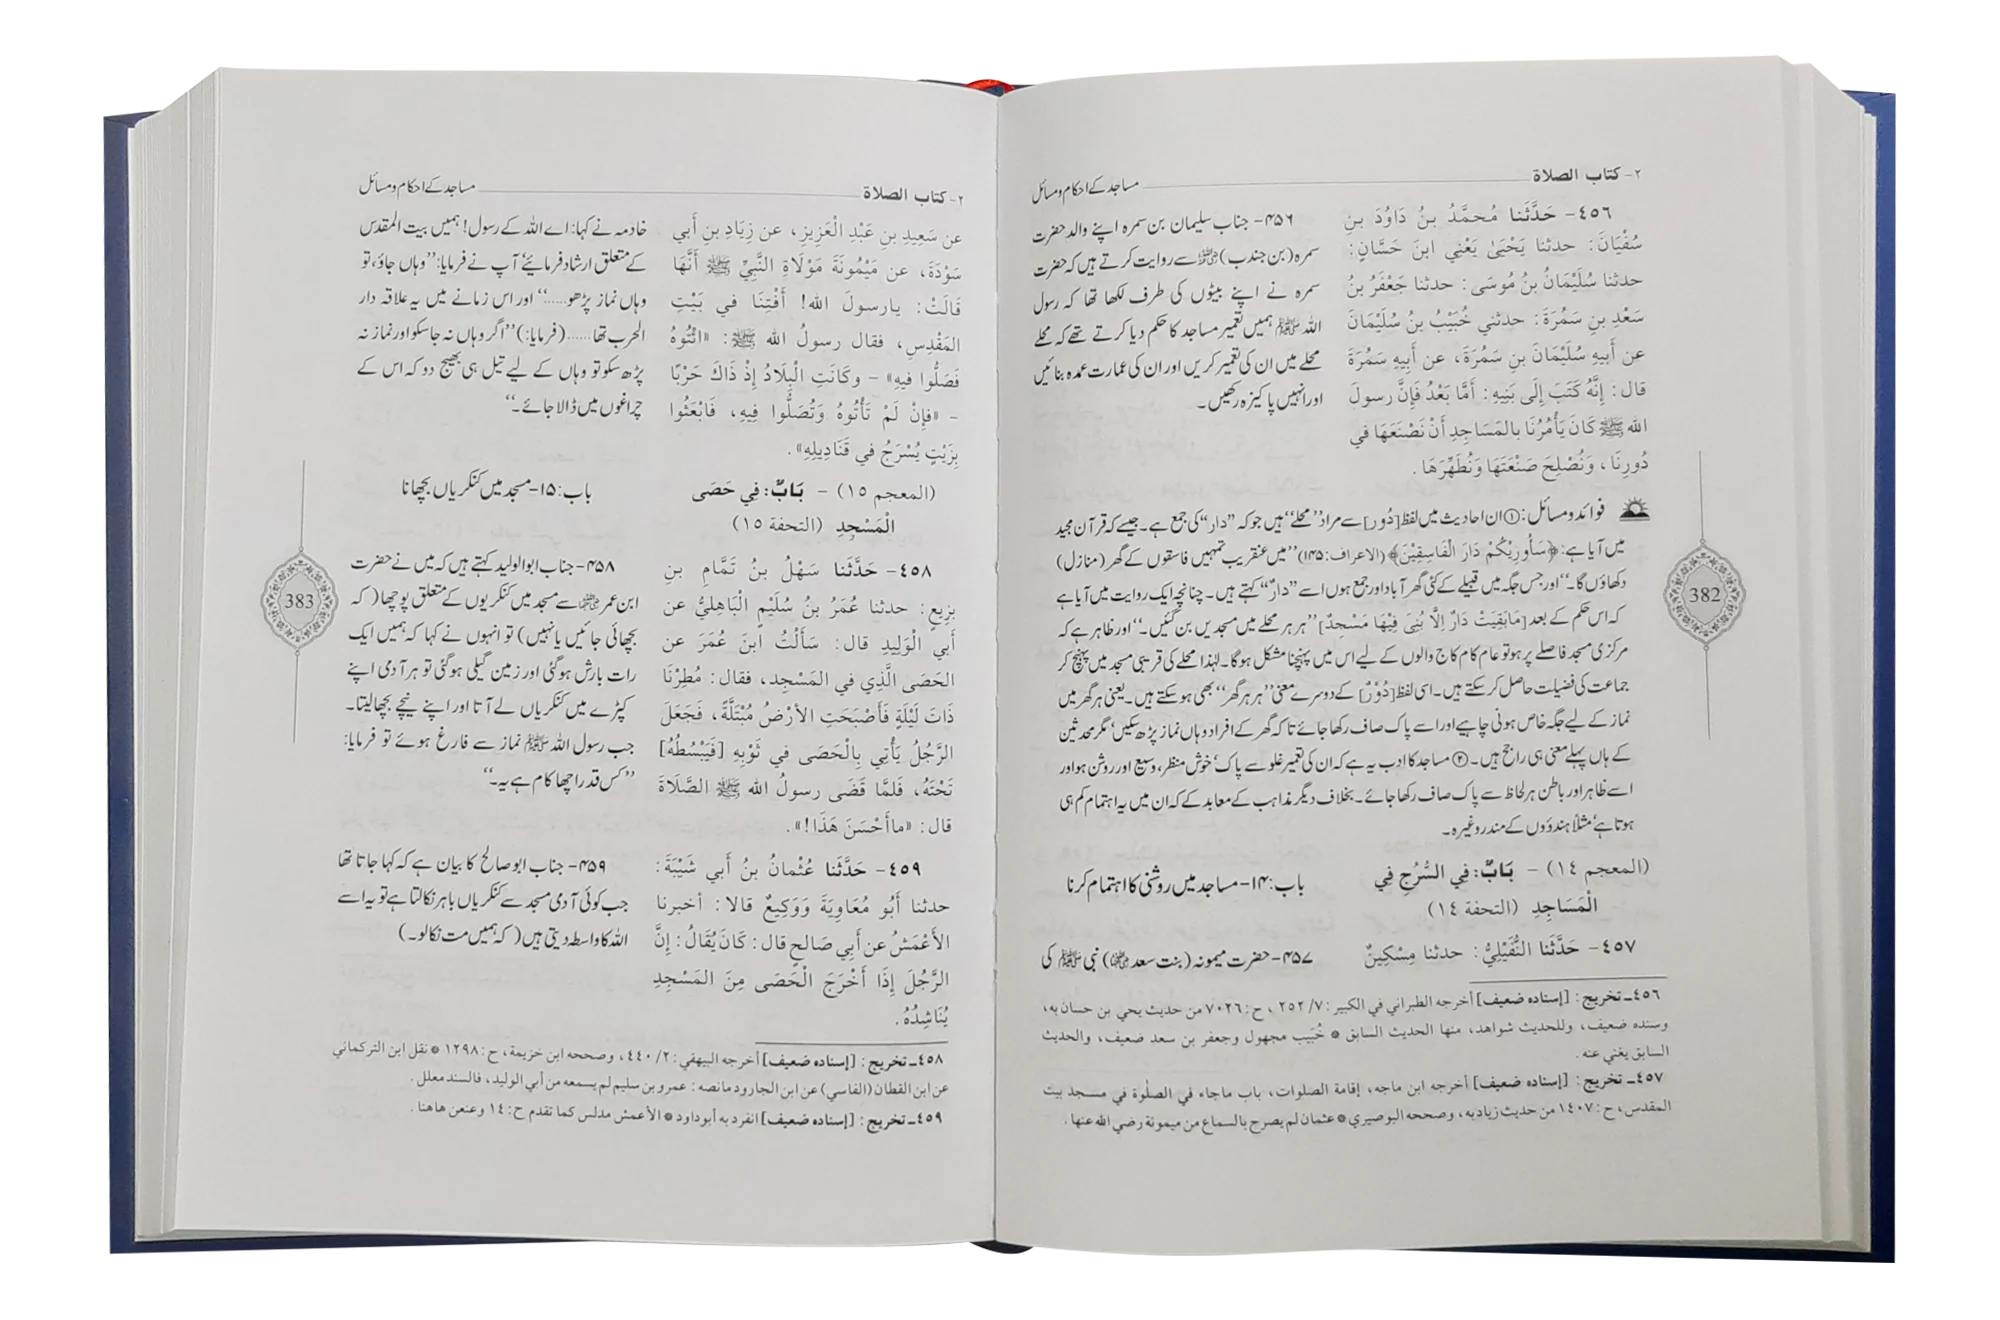 ٢- كتاب الصلاة
مساجد کے احکام و مسائل
٤٥٦- حَدَّثَنا مُحمَّدُ بنُ دَاوُدَ بنِ
سُفْيَانَ: حدثنا يَحْيَىٰ يَعْني ابنَ حَسَّانٍ:
حدثنا سُلَيْمَانُ بنُ مُوسَى: حدثنا جَعْفَرُ بنُ
سَعْدِ بنِ سَمُرَةَ: حدثني خُبَيْبُ بنُ سُلَيْمَانَ
عن أبيهِ سُلَيْمَانَ بنِ سَمُرَةَ، عن أبِيهِ سَمُرَةَ
قال: إنَّهُ كَتَبَ إلَى بَنِيهِ: أمَّا بَعْدُ فَإنَّ رسولَ
الله ﷺ كَانَ يَأْمُرُنَا بالمَسَاجِدِ أنْ نَصْنَعَهَا في
دُورِنَا، وَنُصْلِحَ صَنْعَتَهَا وَنُطَهِّرَهَا.
۴۵۶- جناب سلیمان بن سمرہ اپنے والد حضرت
سمرہ (بن جندب) ؓ سے روایت کرتے ہیں کہ حضرت
سمرہ نے اپنے بیٹوں کی طرف لکھا تھا کہ رسول
اللہ ﷺ ہمیں تعمیر مساجد کا حکم دیا کرتے تھے کہ محلے
محلے میں ان کی تعمیر کریں اور ان کی عمارت عمدہ بنائیں
اور انہیں پاکیزہ رکھیں۔
فوائد و مسائل: ① ان احادیث میں لفظ [دُور] سے مراد ’’محلے‘‘ ہیں جو کہ ’’دار‘‘ کی جمع ہے۔ جیسے کہ قرآن مجید
میں آیا ہے: ﴿سَأُورِيْكُمْ دَارَ الْفَاسِقِيْنَ﴾ (الاعراف: ۱۴۵) ’’میں عنقریب تمہیں فاسقوں کے گھر (منازل)
دکھاؤں گا۔‘‘ اور جس جگہ میں قبیلے کے کئی گھر آباد اور جمع ہوں اسے ’’دارٌ‘‘ کہتے ہیں۔ چنانچہ ایک روایت میں آیا ہے
کہ اس حکم کے بعد [مَابَقِيَتْ دَارٌ اِلَّا بُنِیَ فِيْهَا مَسْجِدٌ] ’’ہر ہر محلے میں مسجدیں بن گئیں۔‘‘ اور ظاہر ہے کہ
مرکزی مسجد فاصلے پر ہو تو عام کام کاج والوں کے لیے اس میں پہنچنا مشکل ہوگا۔ لہٰذا محلے کی قریبی مسجد میں پہنچ کر
جماعت کی فضیلت حاصل کر سکتے ہیں۔ اسی لفظ [دُوْرٌ] کے دوسرے معنی ’’ہر ہر گھر‘‘ بھی ہو سکتے ہیں۔ یعنی ہر گھر میں
نماز کے لیے جگہ خاص ہونی چاہیے اور اسے پاک صاف رکھا جائے تاکہ گھر کے افراد وہاں نماز پڑھ سکیں‘ مگر محدثین
کے ہاں پہلے معنی ہی راجح ہیں۔ ② مساجد کا ادب یہ ہے کہ ان کی تعمیر غلو سے پاک‘ خوش منظر‘ وسیع اور روشن ہو اور
اسے ظاہر اور باطن ہر لحاظ سے پاک صاف رکھا جائے۔ بخلاف دیگر مذاہب کے معابد کے کہ ان میں یہ اہتمام کم ہی
ہوتا ہے‘ مثلاً ہندوؤں کے مندر وغیرہ۔
(المعجم ١٤) - بَابٌ: فِي السُّرُجِ فِي
الْمَسَاجِدِ (التحفة ١٤)
باب: ۱۴- مساجد میں روشنی کا اہتمام کرنا
٤٥٧- حَدَّثَنا النُّفَيْلِيُّ: حدثنا مِسْكِينٌ
۴۵۷- حضرت میمونہ (بنت سعد ؓ) نبی ﷺ کی
٤٥٦- تخريج: [إسناده ضعيف] أخرجه الطبراني في الكبير: ٧/ ٢٥٢، ح: ٧٠٢٦ من حديث يحي بن حسان به،
وسنده ضعيف، وللحديث شواهد، منها الحديث السابق * خُبيب مجهول وجعفر بن سعد ضعيف، والحديث
السابق يغني عنه.
٤٥٧- تخريج: [إسناده ضعيف] أخرجه ابن ماجه، إقامة الصلوات، باب ماجاء في الصلٰوة في مسجد بيت
المقدس، ح: ١٤٠٧ من حديث زياد به، وصححه البوصيري * عثمان لم يصرح بالسماع من ميمونة رضي الله عنها.
382
٢- كتاب الصلاة
مساجد کے احکام و مسائل
عن سَعِيدِ بنِ عَبْدِ الْعَزِيزِ، عن زِيَادِ بنِ أبي
سَوْدَةَ، عن مَيْمُونَةَ مَوْلَاةِ النَّبيِّ ﷺ أنَّهَا
قَالَتْ: يارسولَ الله! أفْتِنَا في بَيْتِ
المَقْدِسِ، فقال رسولُ الله ﷺ: «ائْتُوهُ
فَصَلُّوا فيهِ» - وكَانَتِ الْبِلَادُ إذْ ذَاكَ حَرْبًا
- «فإنْ لَمْ تَأْتُوهُ وَتُصَلُّوا فِيهِ، فَابْعَثُوا
بِزَيْتٍ يُسْرَجُ في قَنَادِيلِهِ».
خادمہ نے کہا: اے اللہ کے رسول! ہمیں بیت المقدس
کے متعلق ارشاد فرمائیے‘ آپ نے فرمایا: ’’وہاں جاؤ، تو
وہاں نماز پڑھو......‘‘ اور اس زمانے میں یہ علاقہ دار
الحرب تھا......(فرمایا:) ’’اگر وہاں نہ جاسکو اور نماز نہ
پڑھ سکو تو وہاں کے لیے تیل ہی بھیج دو کہ اس کے
چراغوں میں ڈالا جائے۔‘‘
(المعجم ١٥) - بَابٌ: فِي حَصَى
الْمَسْجِدِ (التحفة ١٥)
باب: ۱۵- مسجد میں کنکریاں بچھانا
٤٥٨- حَدَّثَنا سَهْلُ بنُ تَمَّامِ بنِ
بَزِيعٍ: حدثنا عُمَرُ بنُ سُلَيْمٍ الْبَاهِليُّ عن
أبي الْوَلِيدِ قال: سَألْتُ ابنَ عُمَرَ عن
الحَصَى الَّذِي في المَسْجِدِ، فقال: مُطِرْنَا
ذَاتَ لَيْلَةٍ فَأصْبَحَتِ الأرْضُ مُبْتَلَّةً، فَجَعَلَ
الرَّجُلُ يَأْتِي بِالْحَصَى في ثَوْبِهِ [فَيَبْسُطُهُ]
تَحْتَهُ، فَلمَّا قَضَى رسولُ الله ﷺ الصَّلَاةَ
قال: «ما أحْسَنَ هَذَا!».
۴۵۸- جناب ابوالولید کہتے ہیں کہ میں نے حضرت
ابن عمر ؓ سے مسجد میں کنکریوں کے متعلق پوچھا (کہ
بچھائی جائیں یا نہیں) تو انہوں نے کہا کہ ہمیں ایک
رات بارش ہوگئی اور زمین گیلی ہوگئی تو ہر آدمی اپنے
کپڑے میں کنکریاں لے آتا اور اپنے نیچے بچھا لیتا۔
جب رسول اللہ ﷺ نماز سے فارغ ہوئے تو فرمایا:
’’کس قدر اچھا کام ہے یہ۔‘‘
٤٥٩- حَدَّثَنا عُثْمانُ بنُ أبي شَيْبَةَ:
حدثنا أبُو مُعَاوِيَةَ وَوَكِيعٌ قالا: أخبرنا
الأعمَشُ عن أبي صَالحٍ قال: كَانَ يُقَالُ: إنَّ
الرَّجُلَ إذَا أخْرَجَ الْحَصَى مِنَ المَسْجِدِ
يُنَاشِدُهُ.
۴۵۹- جناب ابوصالح کا بیان ہے کہ کہا جاتا تھا
جب کوئی آدمی مسجد سے کنکریاں باہر نکالتا ہے تو یہ اسے
اللہ کا واسطہ دیتی ہیں (کہ ہمیں مت نکالو۔)
٤٥٨- تخريج: [إسناده ضعيف] أخرجه البيهقي: ٢/ ٤٤٠، وصححه ابن خزيمة، ح: ١٢٩٨ * نقل ابن التركماني
عن ابن القطان (الفاسي) عن ابن الجارود مانصه: عمرو بن سليم لم يسمعه من أبي الوليد، فالسند معلل.
٤٥٩- تخريج: [إسناده ضعيف] انفرد به أبوداود * الأعمش مدلس كما تقدم ح: ١٤ وعنعن هاهنا.
383